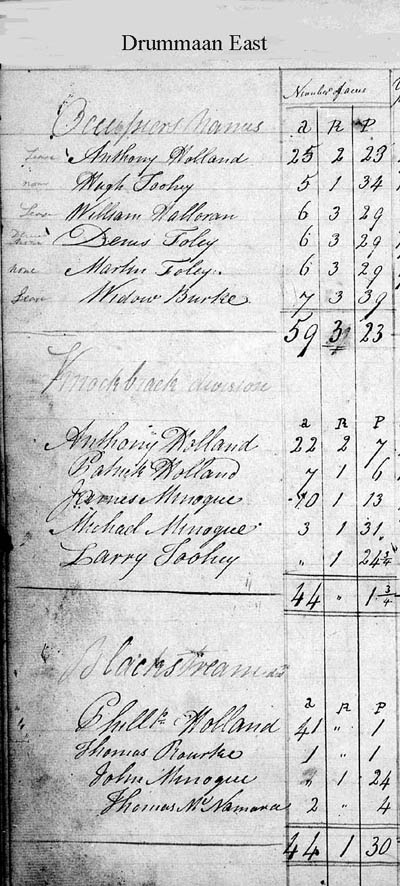 Drummaan East
Number of acres
Occupiers Names a R P
Anthony Holland 25 2 23
none Hugh Toohy 5 1 34
William Halloran 6 3 29
Denis Foley 6 3 29
none Martin Foley. 6 3 29
Widow Burke 7 3 39
59 3 23
Knockbrack division
a R P
Anthony Holland 22 2 7
Patrick Holland 7 1 6
James Minogue 10 1 13
Michael Minogue 3 1 31
Larry Toohey " 1 24 3/4
44 " 1 3/4
Blackstream
a R P
Holland 41 " 1
Thomas Rourke 1 " 1
John Minogue " 1 24
Thomas McNamara 2 " 4
44 1 30